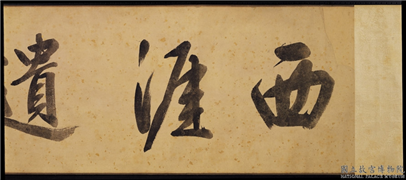 西涯遺
國立故宮博物院
NATIONAL PALACE MUSEUM